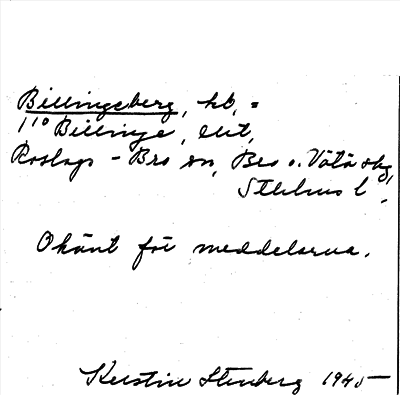 Billingeberg, hb, =
1¹⁰ Billinge, elit,
Roslags-Bro sn, Bro o. Vätö skg,
Sthlms l.
Okänt för meddelarna.
Kerstin Stenberg 1945